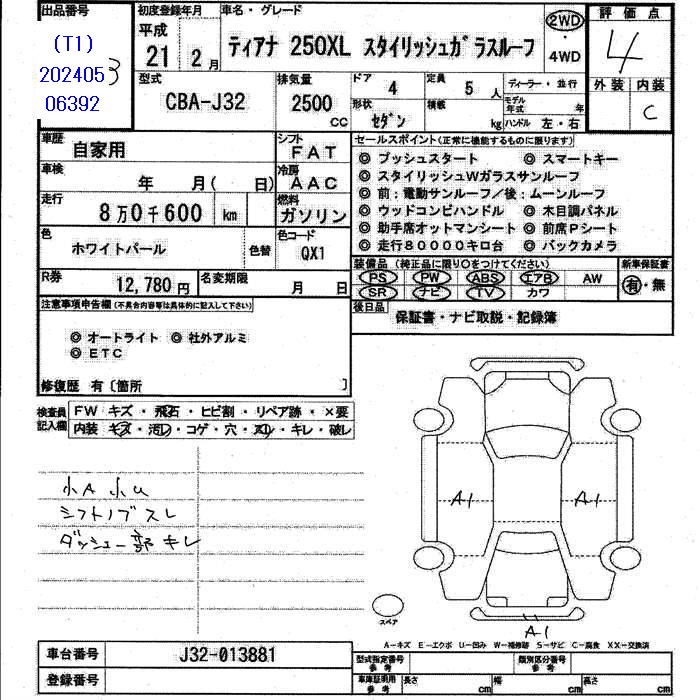 出品番号 初度登録年月 車名・グレード 評価点
(T1) 平成 2WD
21 2 月 ティアナ 250XL スタイリッシュガラスルーフ ・ 4
202405 3 4WD
06392
型式 排気量 ドア 4 定員 5 人 ディーラー・並行 外装 内装
CBA-J32 2500 cc 形状 セダン 積載 kg モデル年式 年 C
ハンドル 左・右
車歴 自家用 シフト FAT セールスポイント(正常に機能するものに限ります)
車検 年 月( 日) 冷房 AAC
◎ プッシュスタート ◎ スマートキー
◎ スタイリッシュWガラスサンルーフ
走行 8万0千600 km 燃料 ガソリン
◎ 前:電動サンルーフ/後:ムーンルーフ
◎ ウッドコンビハンドル ◎ 木目調パネル
色 ホワイトパール 色替 色コード QX1
◎ 助手席オットマンシート ◎ 前席Pシート
◎ 走行80000キロ台 ◎ バックカメラ
R券 12,780 円 名変期限 月 日
装備品 (純正品に限り○をつけてください) 新車保証書
PS PW ABS エアB AW 有・無
SR ナビ TV カワ
注意事項申告欄(不具合内容等は具体的に記入して下さい)
後日品 保証書・ナビ取説・記録簿
◎ オートライト ◎ 社外アルミ
◎ ETC
修復歴 有〔箇所 〕
検査員記入欄 FW キズ・飛石・ヒビ割・リペア跡・×要
内装 キズ・汚レ・コゲ・穴・スレ・キレ・破レ
小A 小U
シフトノブスレ
ダッシュー部キレ
A1 A1
スペア
A1
A-キズ E-エクボ U-凹み W-補修跡 S-サビ C-腐食 XX-交換済
車台番号 J32-013881
型式指定番号 参考 類別区分番号 参考
登録番号
車庫証明用 参考 長さ cm 幅 cm 高さ cm